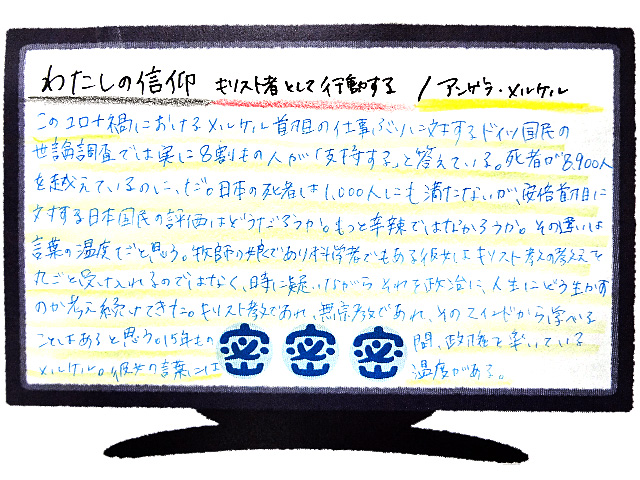 わたしの信仰 キリスト者として行動する / アンゲラ・メルケル
このコロナ禍におけるメルケル首相の仕事ぶりに対するドイツ国民の
世論調査では実に8割もの人が「支持する」と答えている。死者が8,900人
を越えているのに、だ。日本の死者は1,000人にも満たないが、安倍首相に
対する日本国民の評価はどうだろうか。もっと辛辣ではなかろうか。その違いは
言葉の温度だと思う。牧師の娘であり科学者でもある彼女はキリスト教の考えを
丸ごと受け入れるのではなく、時に疑いながらそれを政治に、人生にどう生かす
のか考え続けてきた。キリスト教であれ、無宗教であれ、そのマインドから学べる
ことはあると思う。15年もの 密 密 密 間、政権を率いている
メルケル。彼女の言葉には 温度がある。